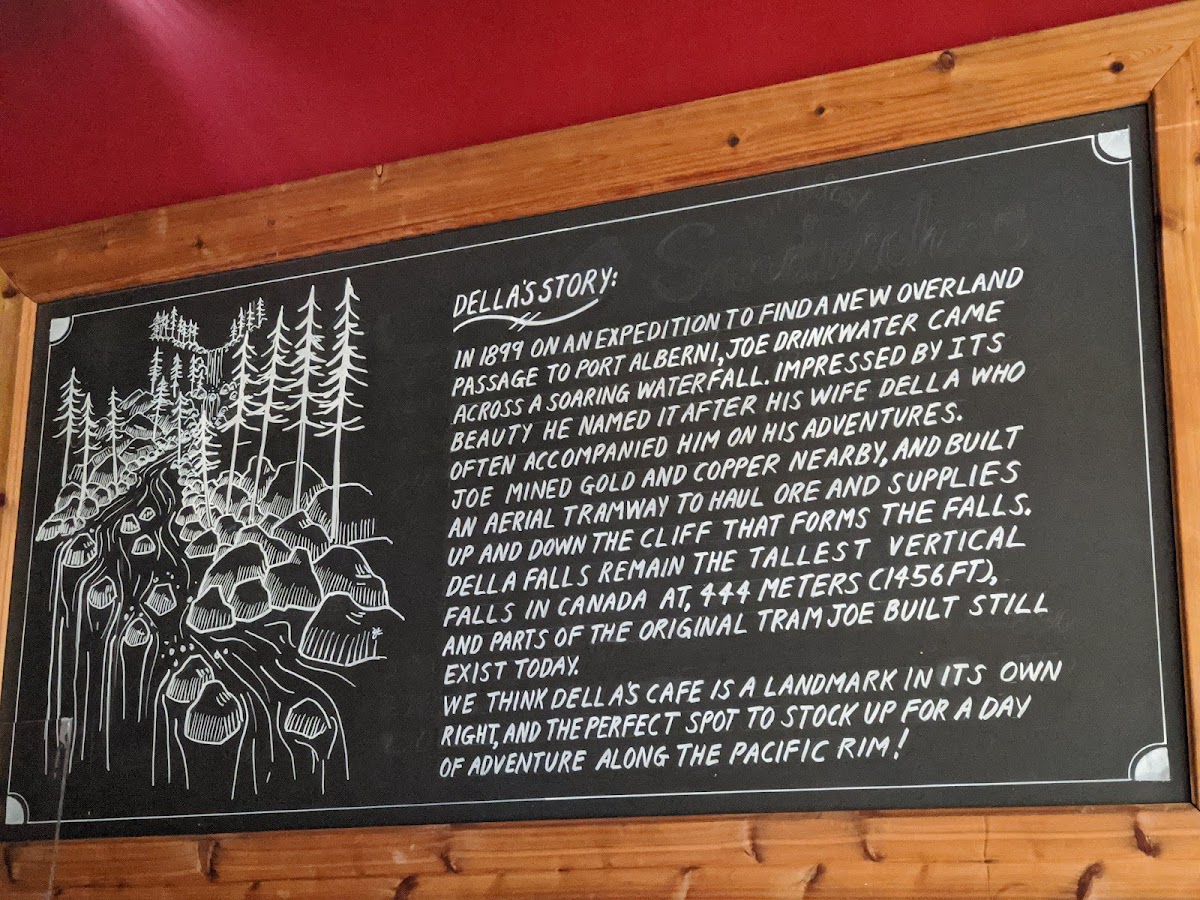 DELLA'S STORY:
IN 1899 ON AN EXPEDITION TO FIND A NEW OVERLAND
PASSAGE TO PORT ALBERNI, JOE DRINKWATER CAME
ACROSS A SOARING WATERFALL. IMPRESSED BY ITS
BEAUTY HE NAMED IT AFTER HIS WIFE DELLA WHO
OFTEN ACCOMPANIED HIM ON HIS ADVENTURES.
JOE MINED GOLD AND COPPER NEARBY, AND BUILT
AN AERIAL TRAMWAY TO HAUL ORE AND SUPPLIES
UP AND DOWN THE CLIFF THAT FORMS THE FALLS.
DELLA FALLS REMAIN THE TALLEST VERTICAL
FALLS IN CANADA AT, 444 METERS (1456 FT),
AND PARTS OF THE ORIGINAL TRAM JOE BUILT STILL
EXIST TODAY.
WE THINK DELLA'S CAFE IS A LANDMARK IN ITS OWN
RIGHT, AND THE PERFECT SPOT TO STOCK UP FOR A DAY
OF ADVENTURE ALONG THE PACIFIC RIM!